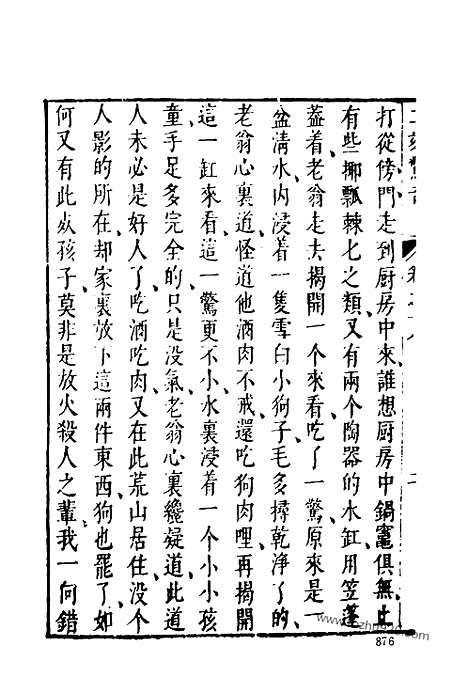 打從傍門走到厨房中來誰想厨房中鍋竈俱無止
有些椰瓢棘匕之類又有兩个陶器的水缸用笠篷
葢着老翁走去揭開一个來看吃了一驚原來是一
盆清水内浸着一隻雪白小狗子毛多撏乾淨了的
老翁心裏道怪道他酒肉不戒還吃狗肉哩再揭開
這一缸來看這一驚更不小水裏浸着一个小小孩
童手足多完全的只是没氣老翁心裏纔疑道此道
人未必是好人了吃酒吃肉又在此荒山居住没个
人影的所在却家裏放下這兩件東西狗也罷了如
何又有此𣦸孩子莫非是放火殺人之輩我一向錯
876